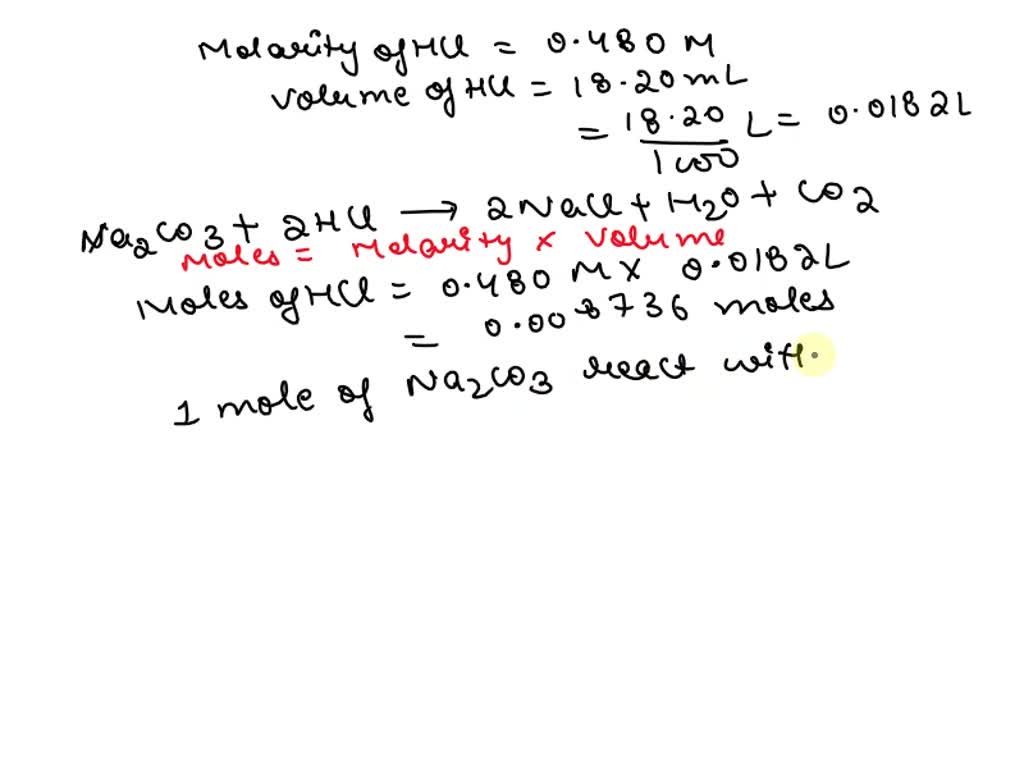 Molarity of HCl = 0.480 M
Volume of HCl = 18.20 mL
= 18.20/1000 L = 0.0182L
Na2CO3 + 2HCl → 2NaCl + H2O + CO2
Moles = Molarity x Volume
Moles of HCl = 0.480 M x 0.0182L
= 0.008736 moles
1 mole of Na2CO3 react with